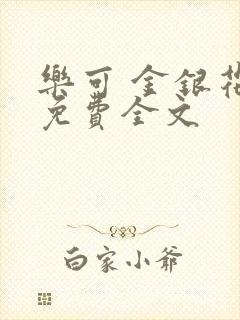 樂可 金銀花
免費全文
白家小爺